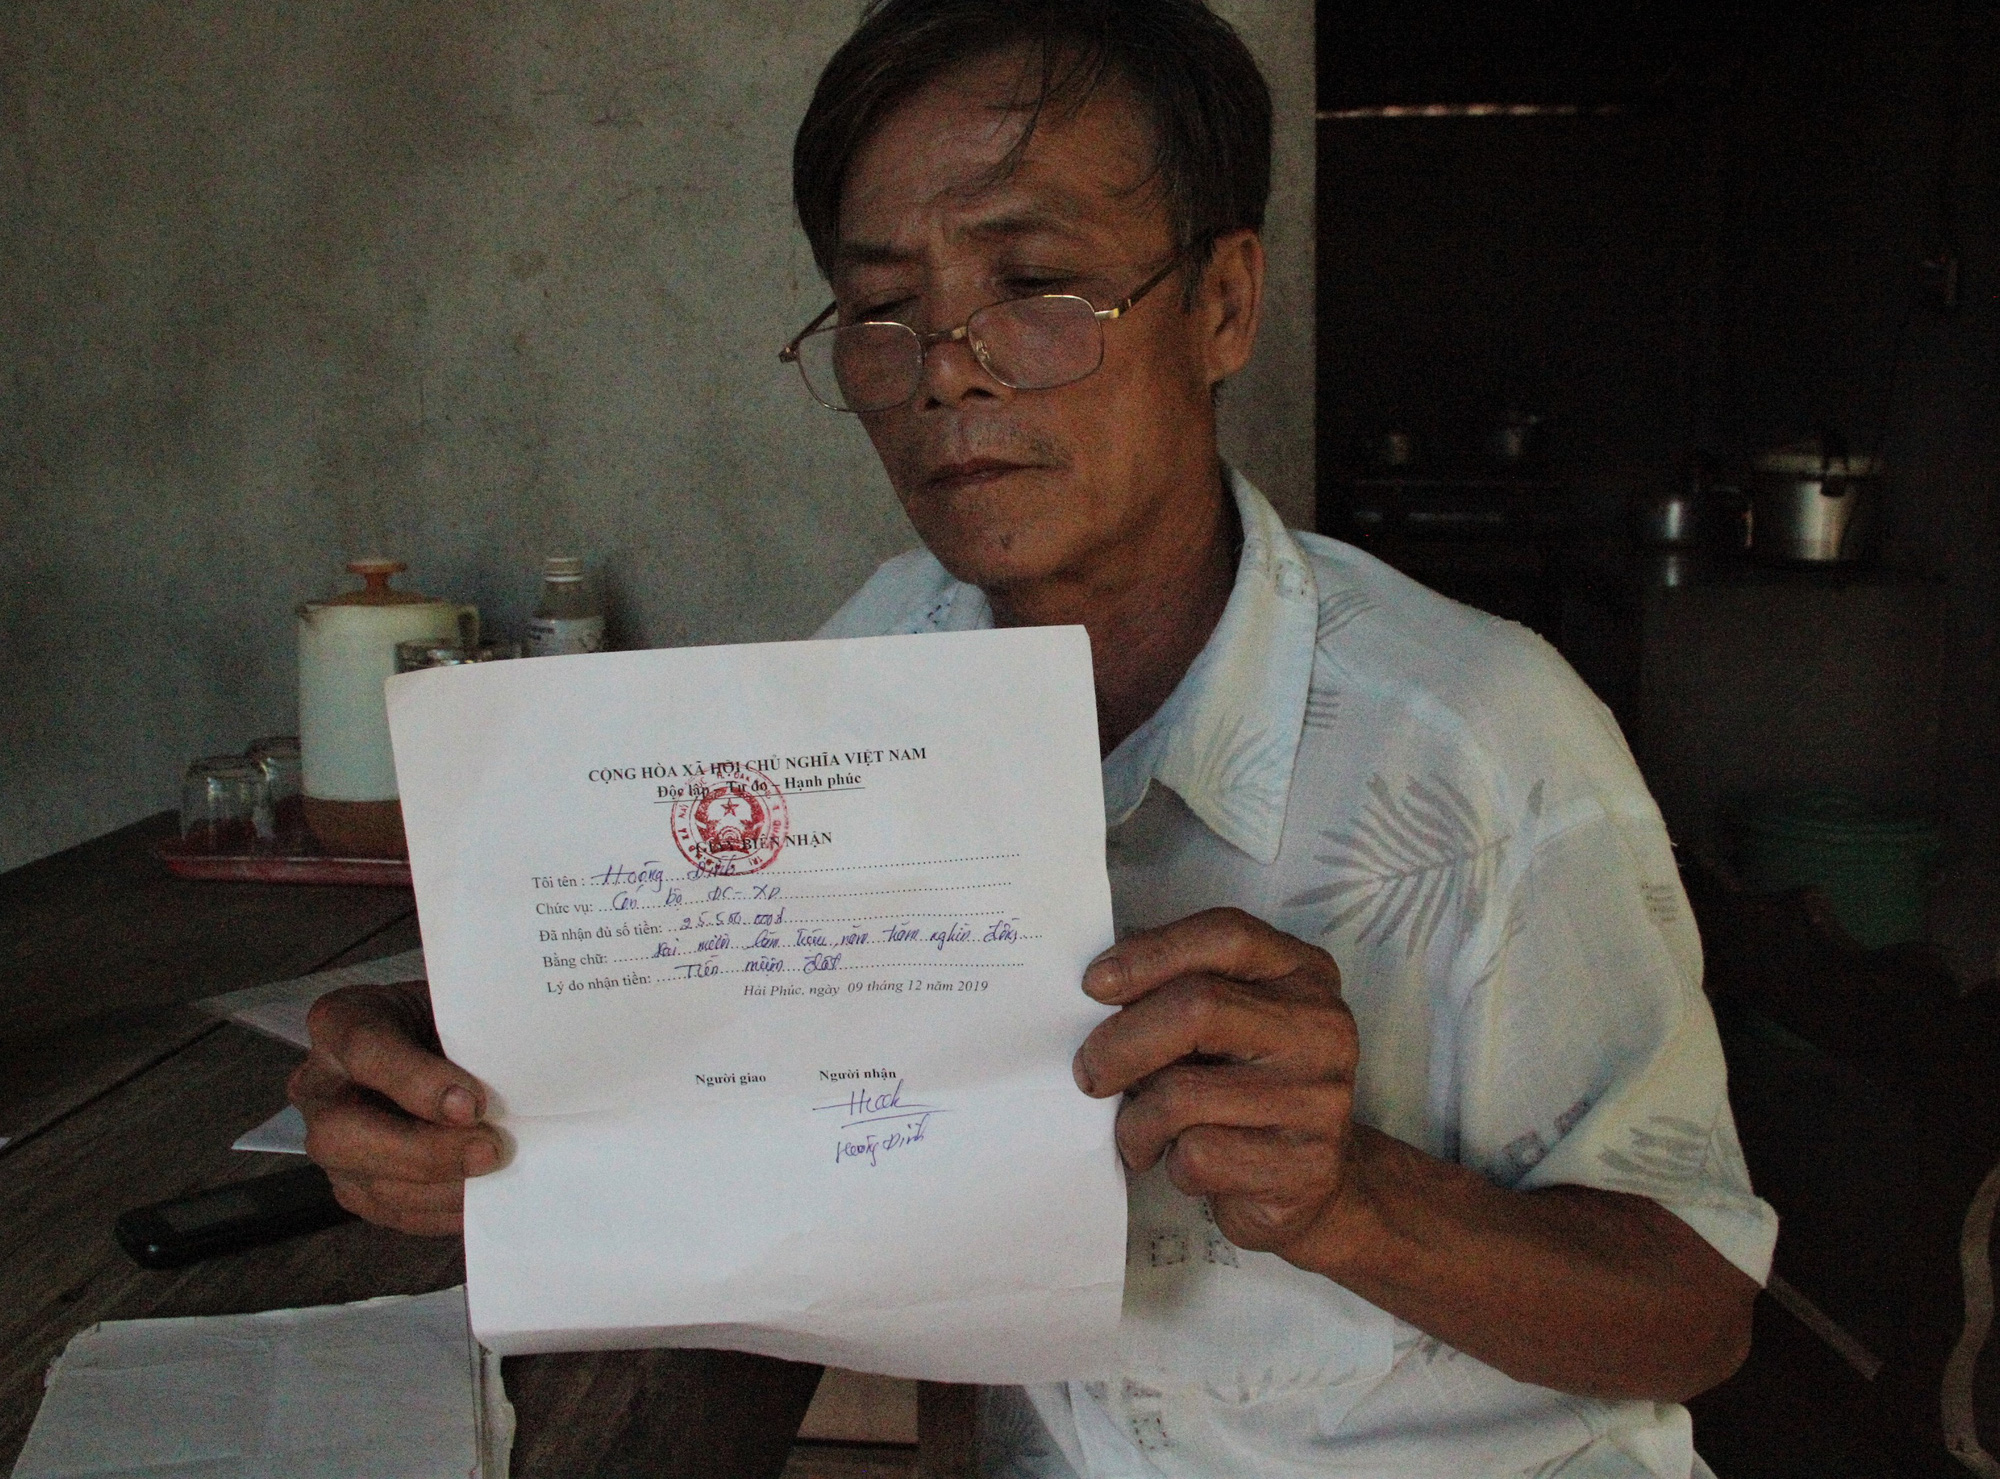 CỘNG HÒA XÃ HỘI CHỦ NGHĨA VIỆT NAM
Độc lập – Tự do – Hạnh phúc
GIẤY BIÊN NHẬN
Tôi tên : Hoàng Đình
Chức vụ: Cán bộ ĐC-XD
Đã nhận đủ số tiền: 25.500.000đ
Bằng chữ: Hai mươi lăm triệu năm trăm nghìn đồng
Lý do nhận tiền: Tiền mượn đất
Hải Phúc, ngày 09 tháng 12 năm 2019
Người giao Người nhận
Hoàng Đình